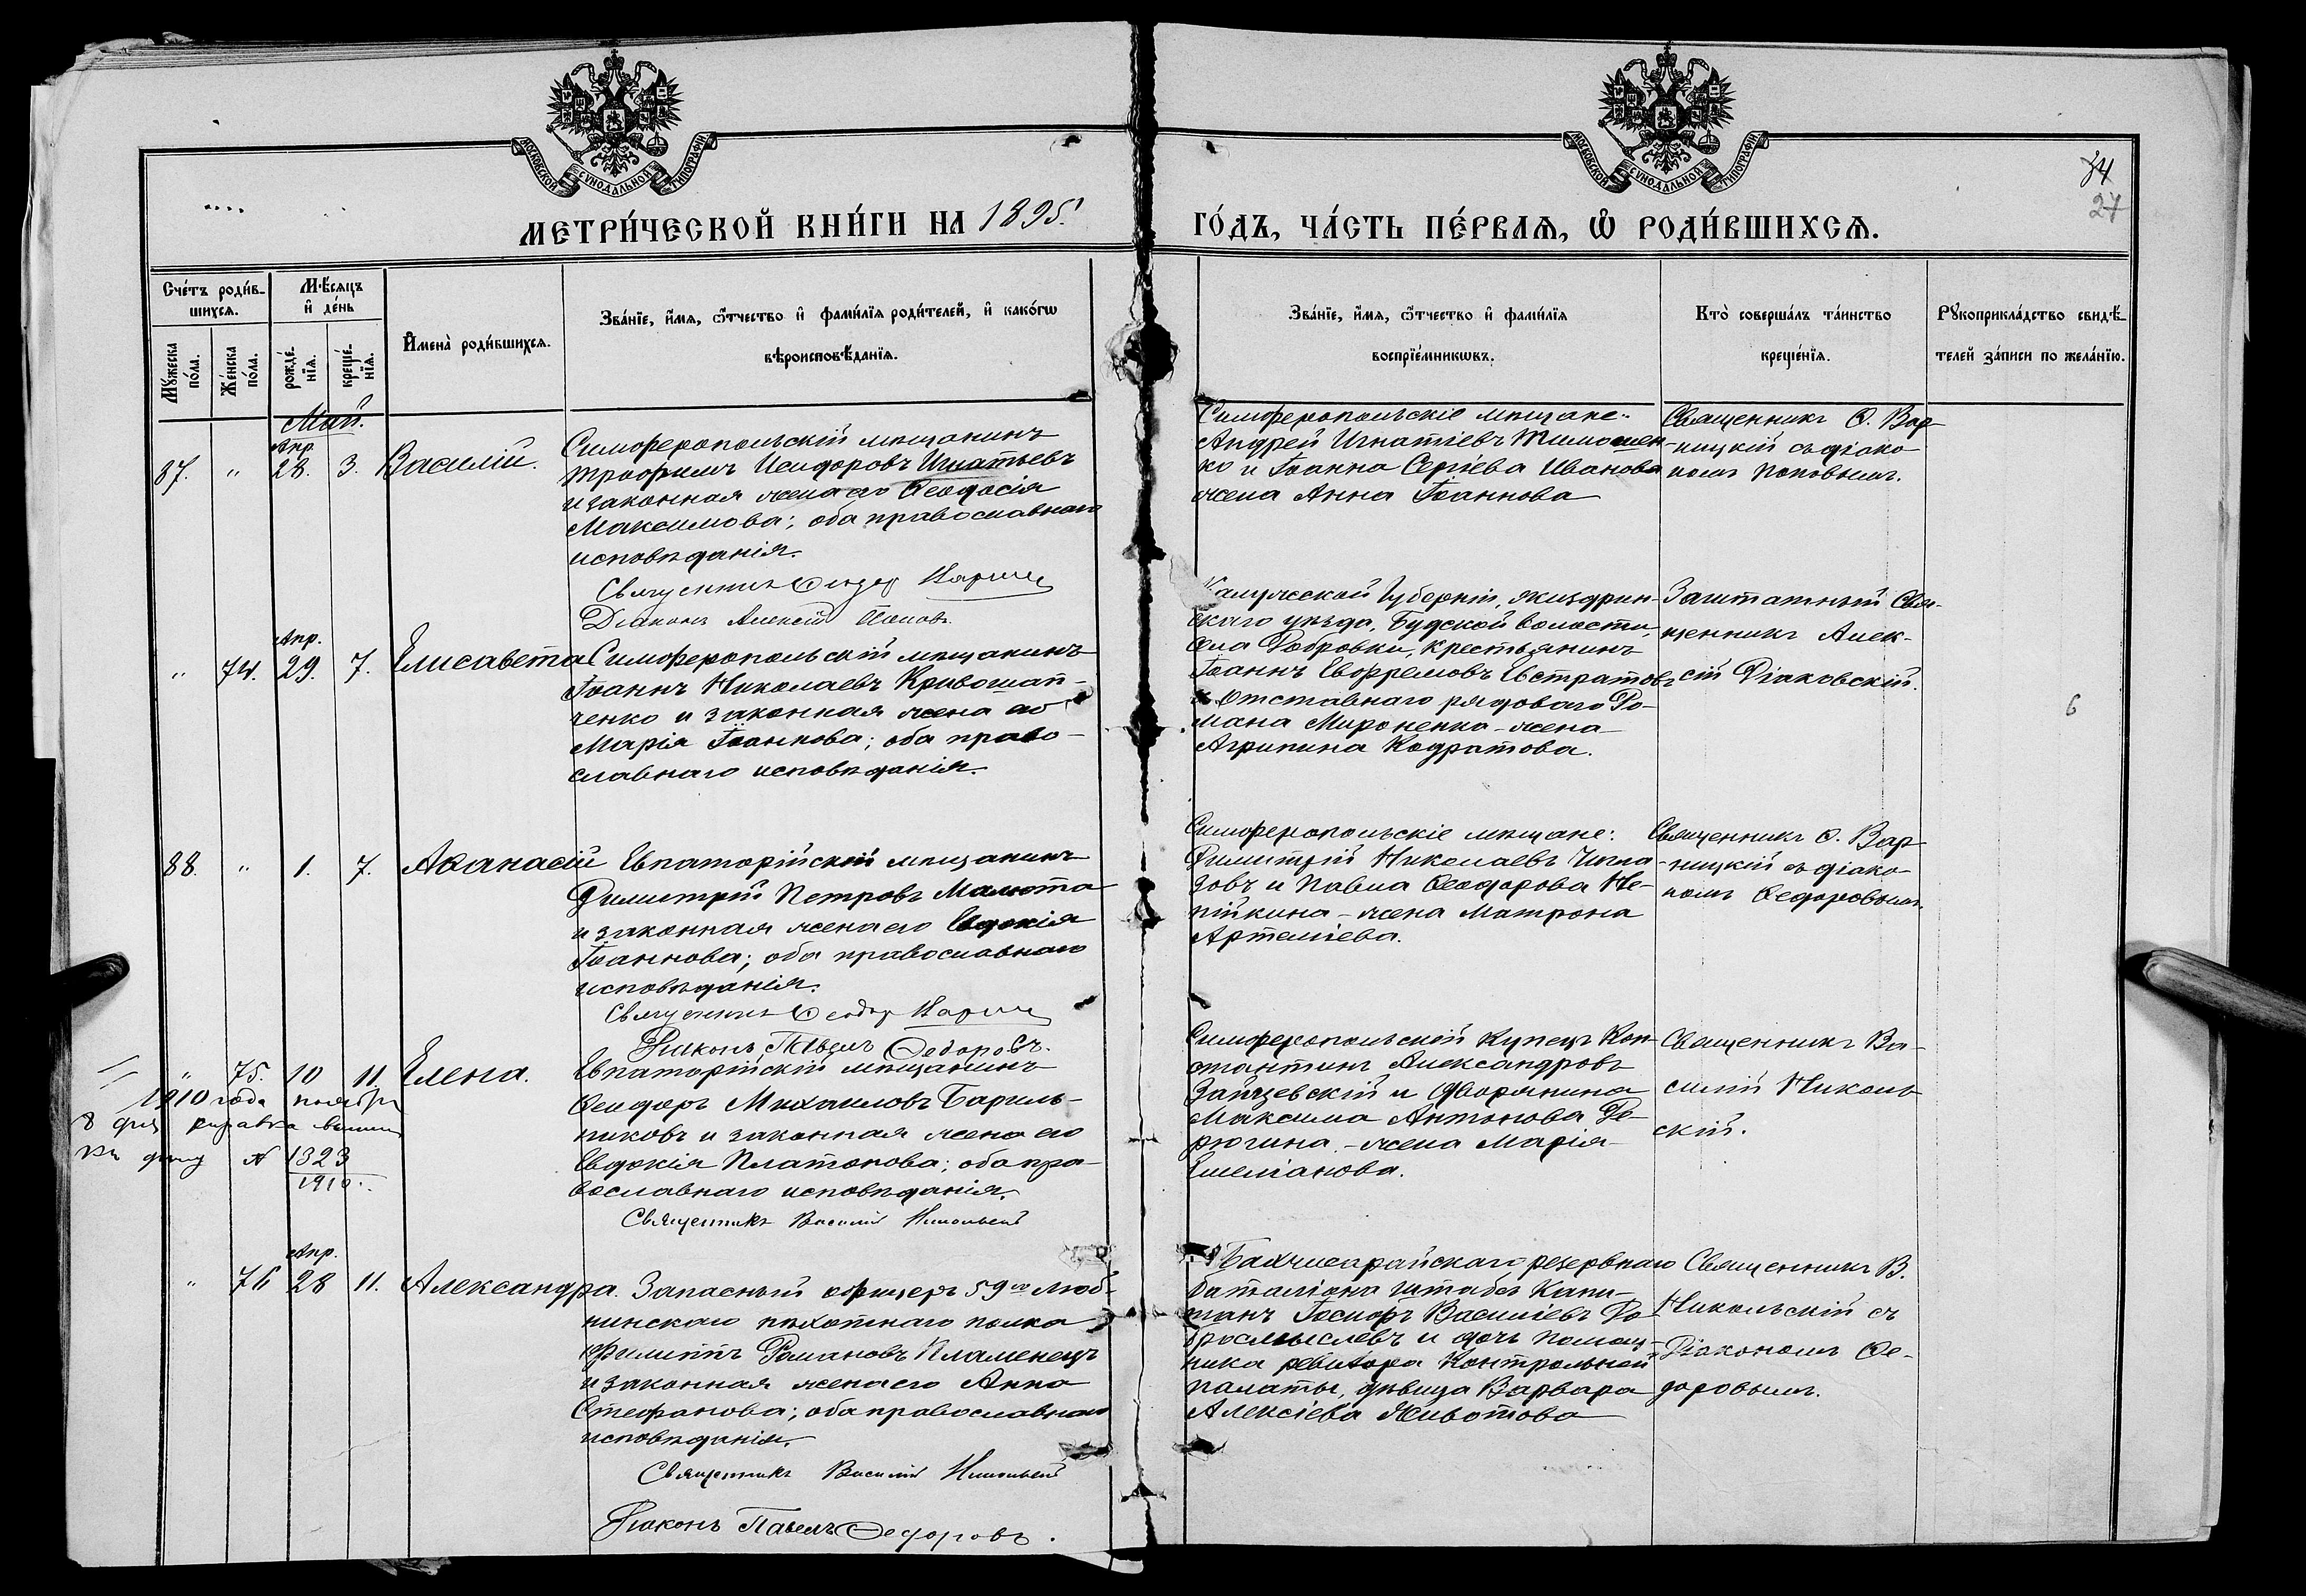 МОСКОВСКОЙ СѴНОДАЛЬНОЙ ТИПОГРАФІИ
МОСКОВСКОЙ СѴНОДАЛЬНОЙ ТИПОГРАФІИ
34
27
МЕТРИ́ЧЕСКОЙ КНИ́ГИ НА 1895.
ГО́ДЪ, ЧА́СТЬ ПЕ́РВАѦ, Ѡ҆ РОДИ́ВШИХСѦ.
Сче́тъ роди́в-
шихсѧ.
Мѣ́сѧцъ
и҆ де́нь
Мꙋ́жеска
по́ла.
Же́нска
по́ла.
рожде́-
нїѧ.
креще́-
нїѧ.
И҆мена̀ роди́вшихсѧ.
Зва́нїе, и҆́мѧ, ѻ҆́тчество и҆ фами́лїѧ роди́телей, и҆ како́гѡ
вѣроисповѣ́данїѧ.
Зва́нїе, и҆́мѧ, ѻ҆́тчество и҆ фами́лїѧ
воспрїе́мникѡвъ.
Кто̀ соверша́лъ та́инство
креще́нїѧ.
Рꙋкоприкла́дство свидѣ́-
телей за́писи по жела́нїю.
Май.
Апр.
87. " 28. 3. Василій.
Симферопольскій мѣщанинъ
Трофимъ Исидоровъ Игнатьевъ
и законная жена его Ѳеодосія
Максимова; оба православнаго
исповѣданія.
Священникъ Ѳеодор
Діаконъ Алексій Поповъ.
Симферопольскіе мѣщане:
Андрей Игнатіевъ Тимошен-
ко и Іоанна Сергіева Иванова
жена Анна Іоаннова
Священникъ Ѳ. Вар-
ницкій съ діако-
номъ Поповымъ.
Апр.
" 74. 29. 7. Елисавета
Симферопольскій мѣщанинъ
Іоаннъ Николаевъ Кривошап-
ченко и законная жена его
Марія Іоаннова; оба право-
славнаго исповѣданія.
Калужской губерніи, Жиздрин-
скаго уѣзда, Будской волости,
села Добровки, крестьянинъ
Іоаннъ Евфремовъ Евстратовъ
и отставнаго рядоваго Ро-
мана Мироненка - жена
Агрипина Кодратова.
Заштатный Свя-
щенникъ Алек-
сій Діаковскій.
6
88. " 1. 7. Аѳанасій
Евпаторійскій мѣщанинъ
Димитрій Петровъ Малюта
и законная жена его Евдокія
Іоаннова; оба православнаго
исповѣданія.
Священникъ Ѳеодор
Діаконъ Павелъ Ѳедоровъ.
Симферопольскіе мѣщане:
Димитрій Николаевъ
зовъ и Павла Ѳеодорова Не-
пійкина - жена Матрона
Артеміева.
Священникъ Ѳ. Вар-
ницкій съ діако-
номъ Ѳедоровымъ.
" 75. 10 11 Елена.
1910 года ноября
8 дня справка
къ дѣлу N 1323
1910.
Евпаторійскій мѣщанинъ
Ѳеодоръ Михаиловъ Бариль-
никовъ и законная жена его
Евдокія Платонова; оба пра-
вославнаго исповѣданія.
Священникъ Василій Никольскій
Симферопольскій купецъ Кон-
стантинъ Александровъ
Зайцевскій и дворянина
Максима Антонова Де-
рюгина - жена Марія
Емеліанова.
Священникъ Ва-
силій Николь-
скій.
Апр.
" 76 28 11. Александра.
Запасный офицеръ 59го Люб-
линскаго пѣхотнаго полка
Филиппъ Романовъ Пламенецъ
и законная жена его Анна
Стефанова; оба православнаго
исповѣданія.
Священникъ Василій Никольскій
Діаконъ Павелъ Ѳедоровъ.
Бахчисарайскаго резервнаго
баталіона Штабсъ Капи-
танъ Іосифъ Василіевъ До-
бросмысловъ и дочь помощ-
ника ревизора Контрольной
палаты, дѣвица Варвара
Алексіева Животова
Священникъ В.
Никольскій съ
Діакономъ Ѳе-
доровымъ.